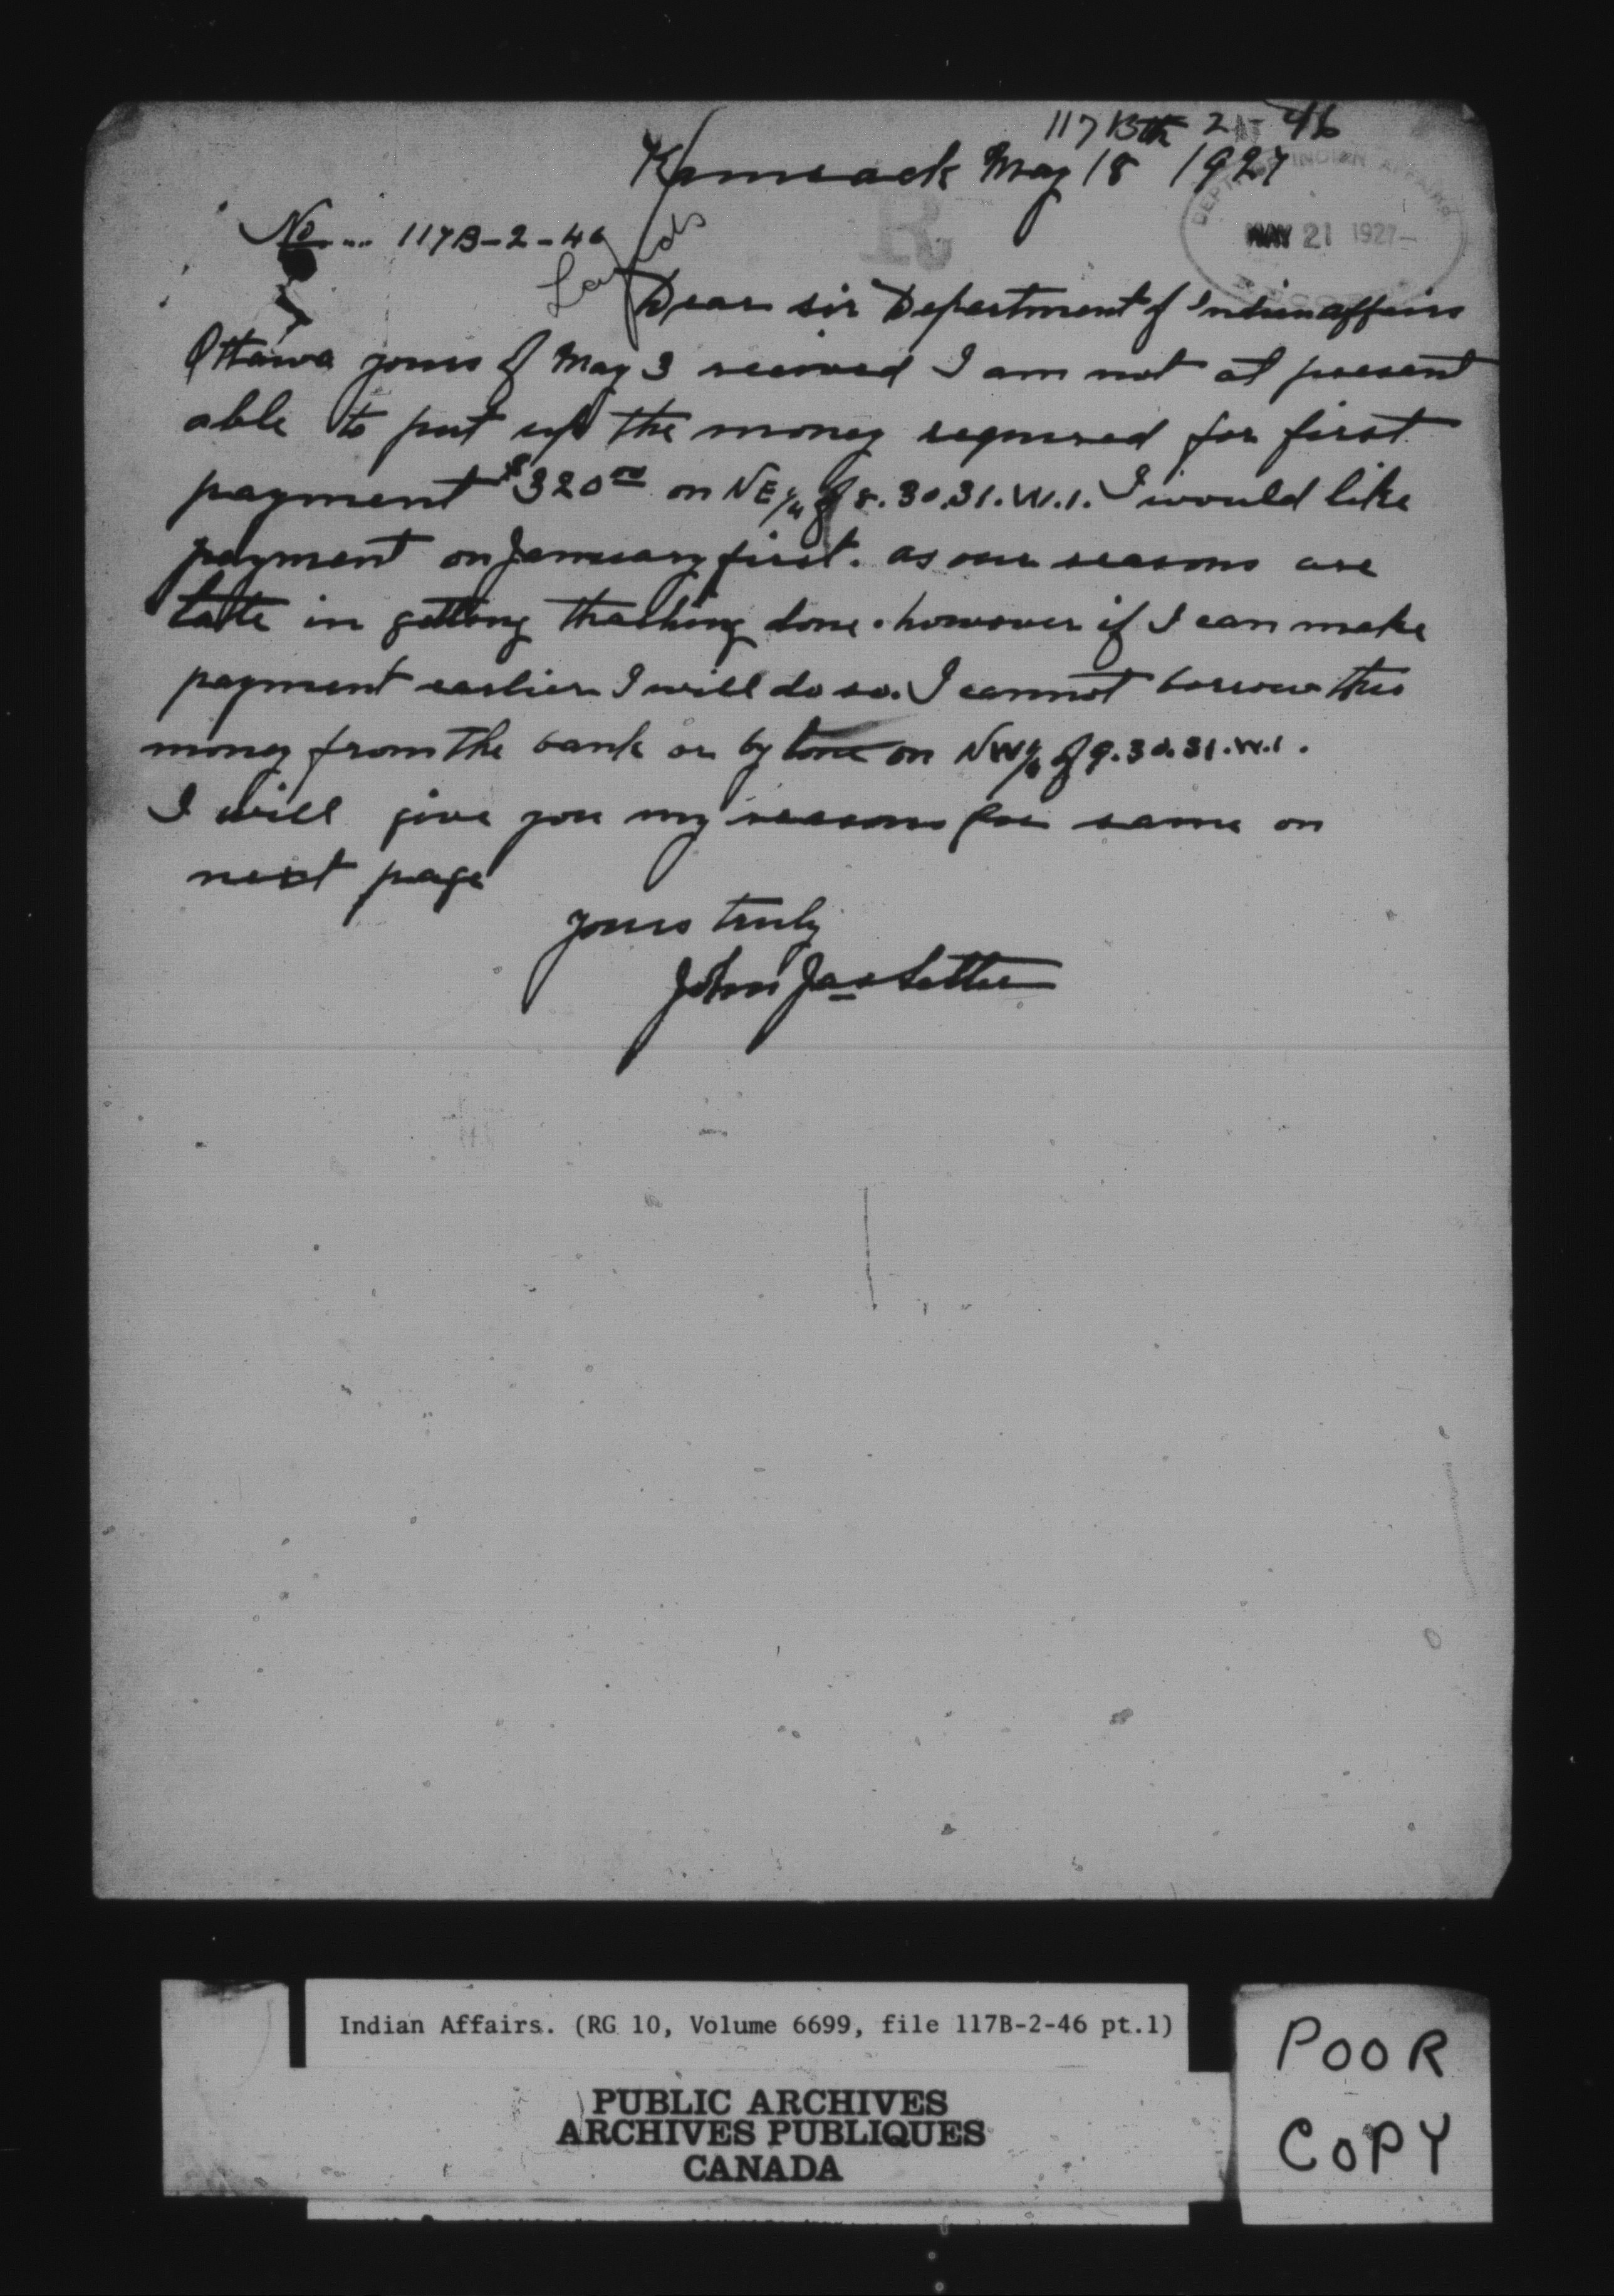 117B 2-46
Kamsack May 18 1927
DEPT. OF INDIAN AFFAIRS
MAY 21 1927
R
No... 117B-2-46
Lands
Dear sir Department of Indian affairs
Ottawa yours of May 3 received I am not at present
able to put up the money required for first
payment $320 00 on NE 1/4 of 8. 30. 31. W. 1. I would like
payment on January first. as our seasons are
late in getting thrashing done. however if I can make
payment earlier I will do so. I cannot borrow this
money from the bank or by on NW 1/4 of 9. 30. 31. W. 1.
I will give you my reasons for same on
next page
yours truly
John Jas Settee
Indian Affairs. (RG 10, Volume 6699, file 117B-2-46 pt.1)
PUBLIC ARCHIVES
ARCHIVES PUBLIQUES
CANADA
POOR
COPY